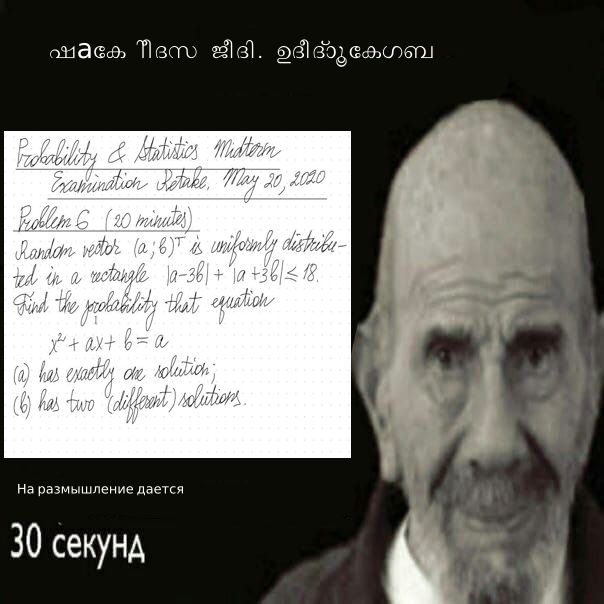 ഷaകേ റീദസ ജീദി. ഉദീദാൂകേഗബ
Probability & Statistics Midterm
Examination Retake, May 20, 2020
Problem 6 (20 minutes)
Random vector (a; b)ᵀ is uniformly distribu-
ted in a rectangle |a-3b| + |a+3b| ≤ 18.
Find the probability that equation
x² + ax + b = a
(a) has exactly one solution;
(b) has two (different) solutions.
На размышление дается
30 секунд